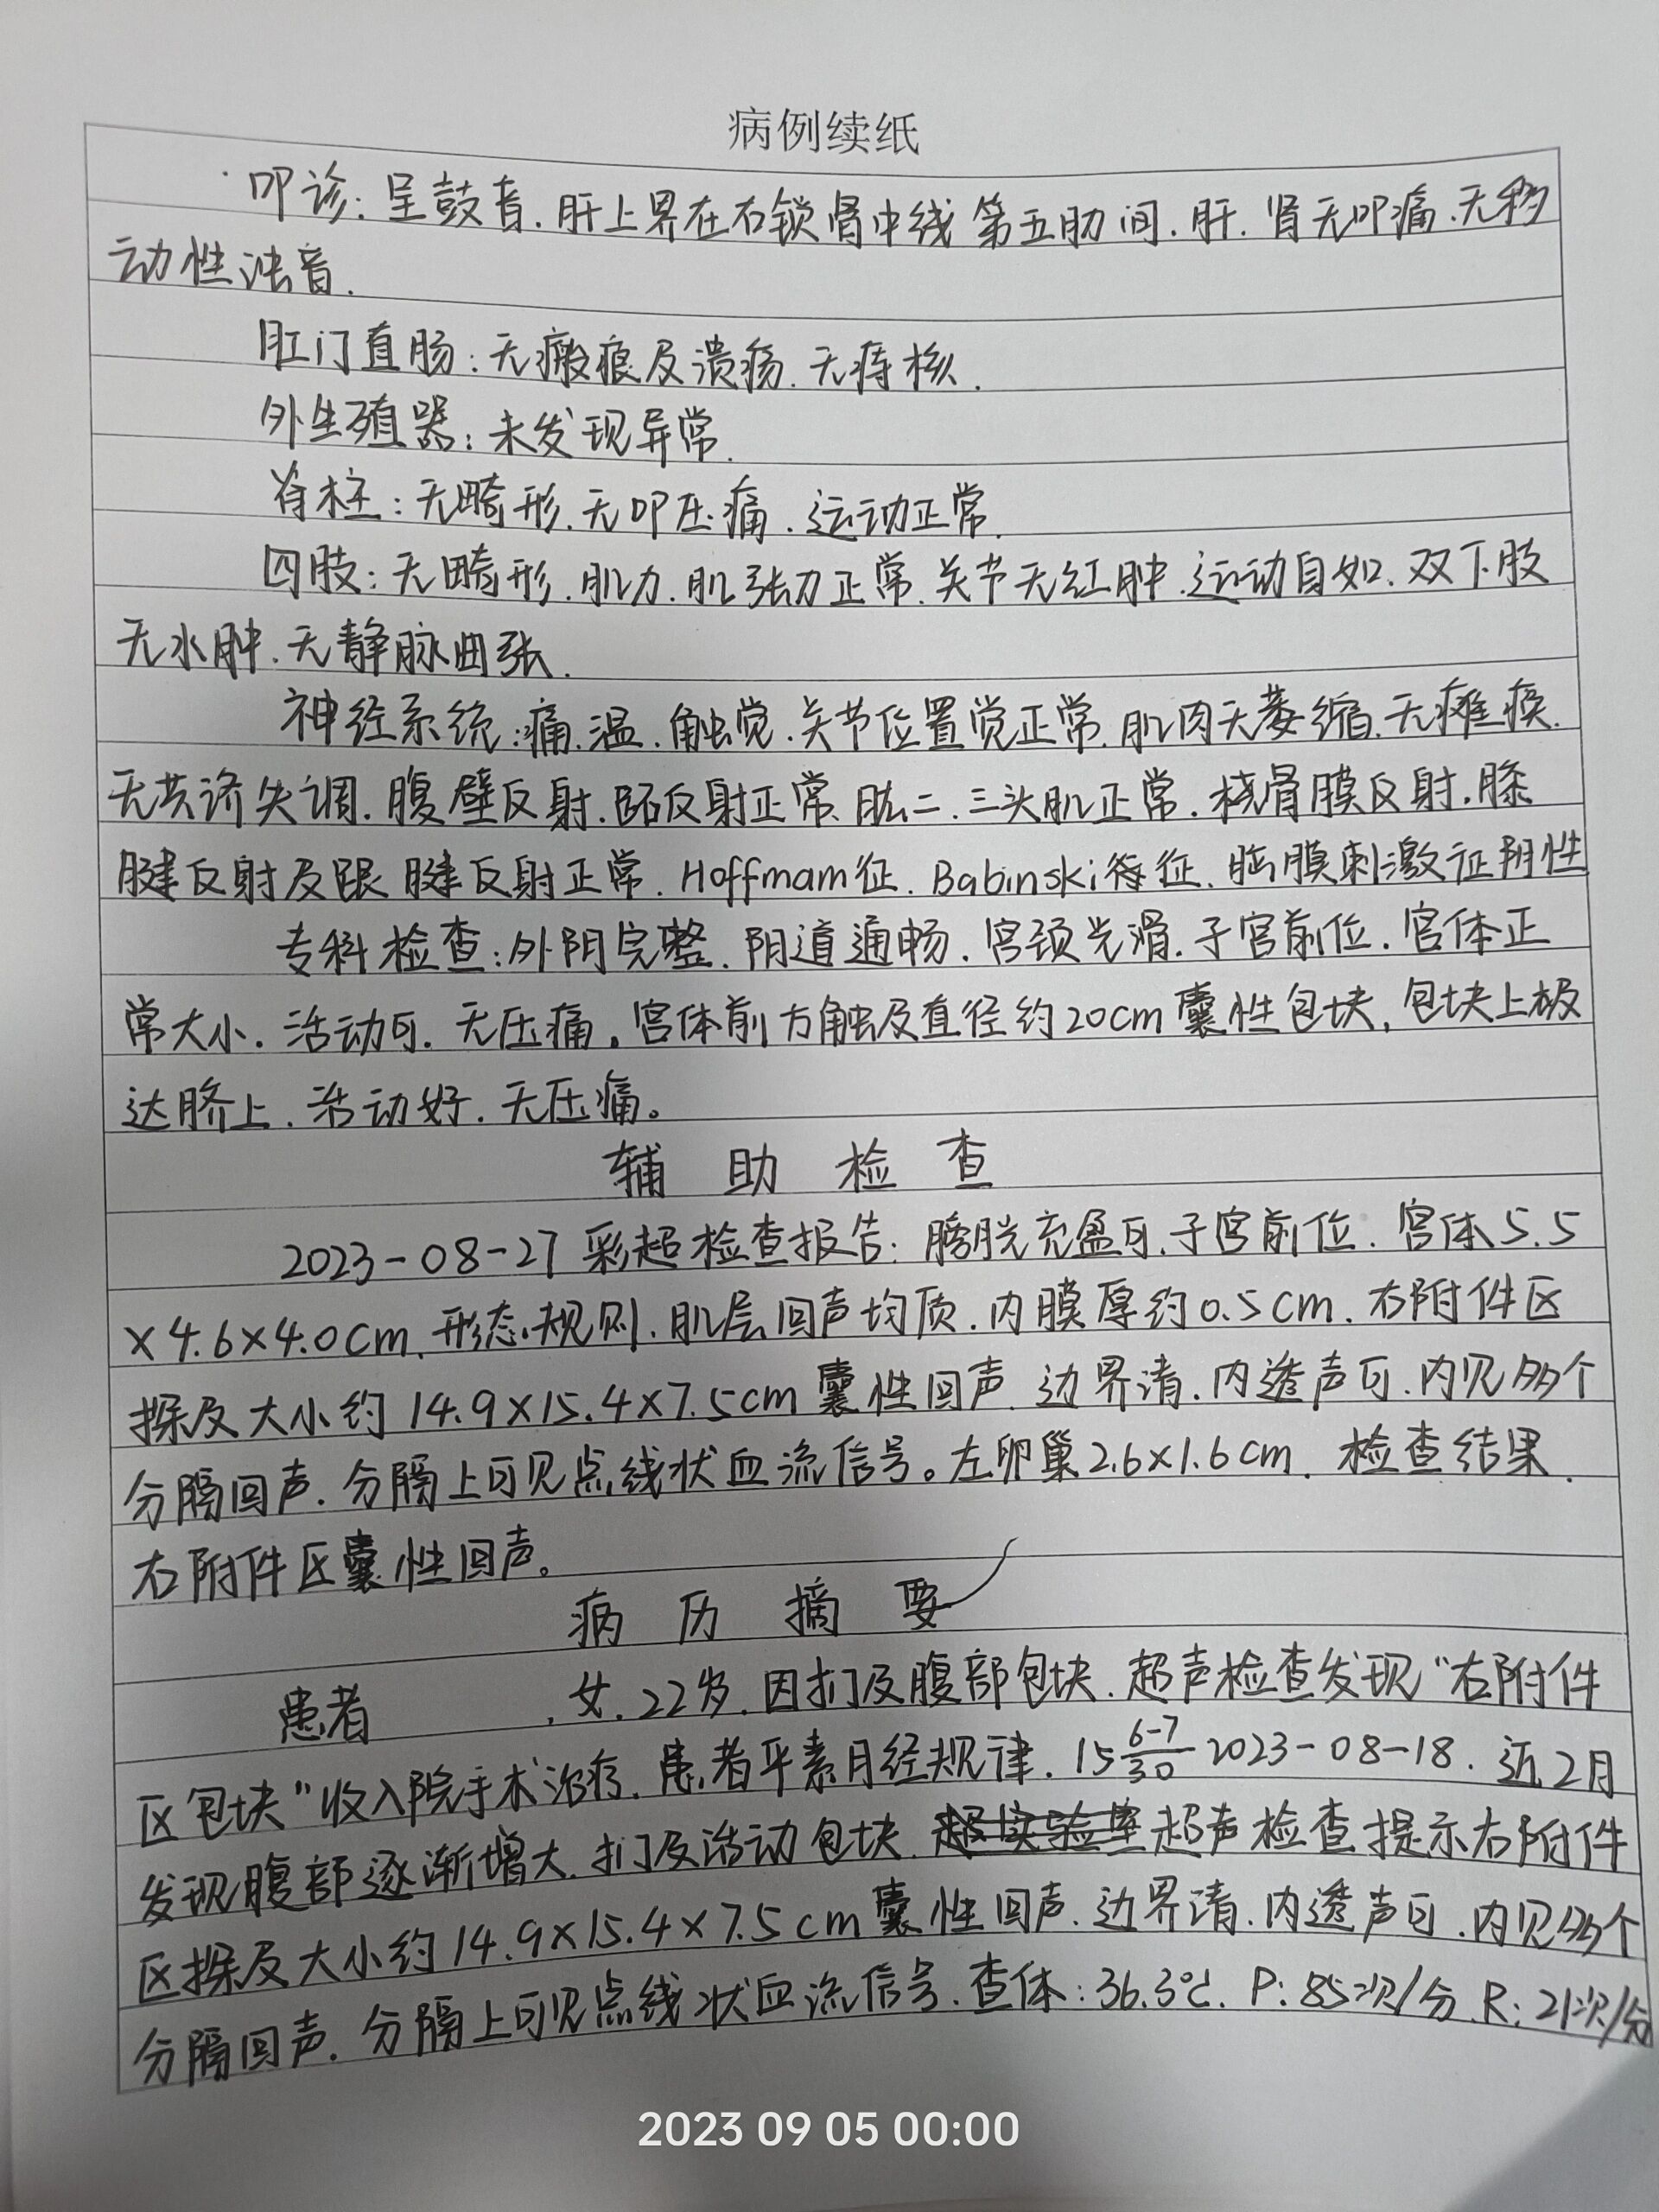 病例续纸
叩诊：呈鼓音．肝上界在右锁骨中线第五肋间．肝．肾无叩痛．无移
动性浊音．
肛门直肠：无瘢痕及溃疡．无痔核．
外生殖器：未发现异常．
脊柱：无畸形．无叩压痛．运动正常．
四肢：无畸形．肌力．肌张力正常．关节无红肿．运动自如．双下肢
无水肿．无静脉曲张．
神经系统：痛．温．触觉．关节位置觉正常．肌肉无萎缩．无瘫痪．
无共济失调．腹壁反射．跖反射正常．肱二．三头肌正常．桡骨膜反射．膝
腱反射及跟腱反射正常．Hoffmam征．Babinski征．脑膜刺激征阴性
专科检查：外阴完整．阴道通畅．宫颈光滑．子宫前位．宫体正
常大小．活动可．无压痛。宫体前方触及直径约20cm囊性包块，包块上极
达脐上．活动好．无压痛。
辅助检查
2023-08-27彩超检查报告：膀胱充盈可．子宫前位．宫体5.5
×4.6×4.0cm．形态规则．肌层回声均质．内膜厚约0.5cm．右附件区
探及大小约14.9×15.4×7.5cm囊性回声．边界清．内透声可．内见多个
分隔回声．分隔上可见点线状血流信号。左卵巢2.6×1.6cm．检查结果．
右附件区囊性回声。
病历摘要
患者　　　．女．22岁．因扪及腹部包块．超声检查发现“右附件
区包块”收入院手术治疗．患者平素月经规律．15 6-7/30 2023-08-18．近2月
发现腹部逐渐增大．扪及活动包块．超声检查提示右附件
区探及大小约14.9×15.4×7.5cm囊性回声．边界清．内透声可．内见多个
分隔回声．分隔上可见点线状血流信号．查体：36.3℃．P：85次/分．R：21次/分
2023 09 05 00:00